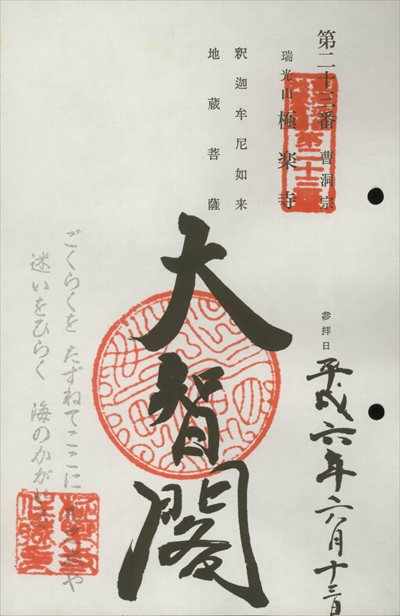 第二十三番 曹洞宗
瑞光山 極楽寺
釈迦牟尼如来
地蔵菩薩
参拝日
平成六年六月十三日
大智閣
ごくらくを たずねてここに
や
迷いをひらく 海のかがり